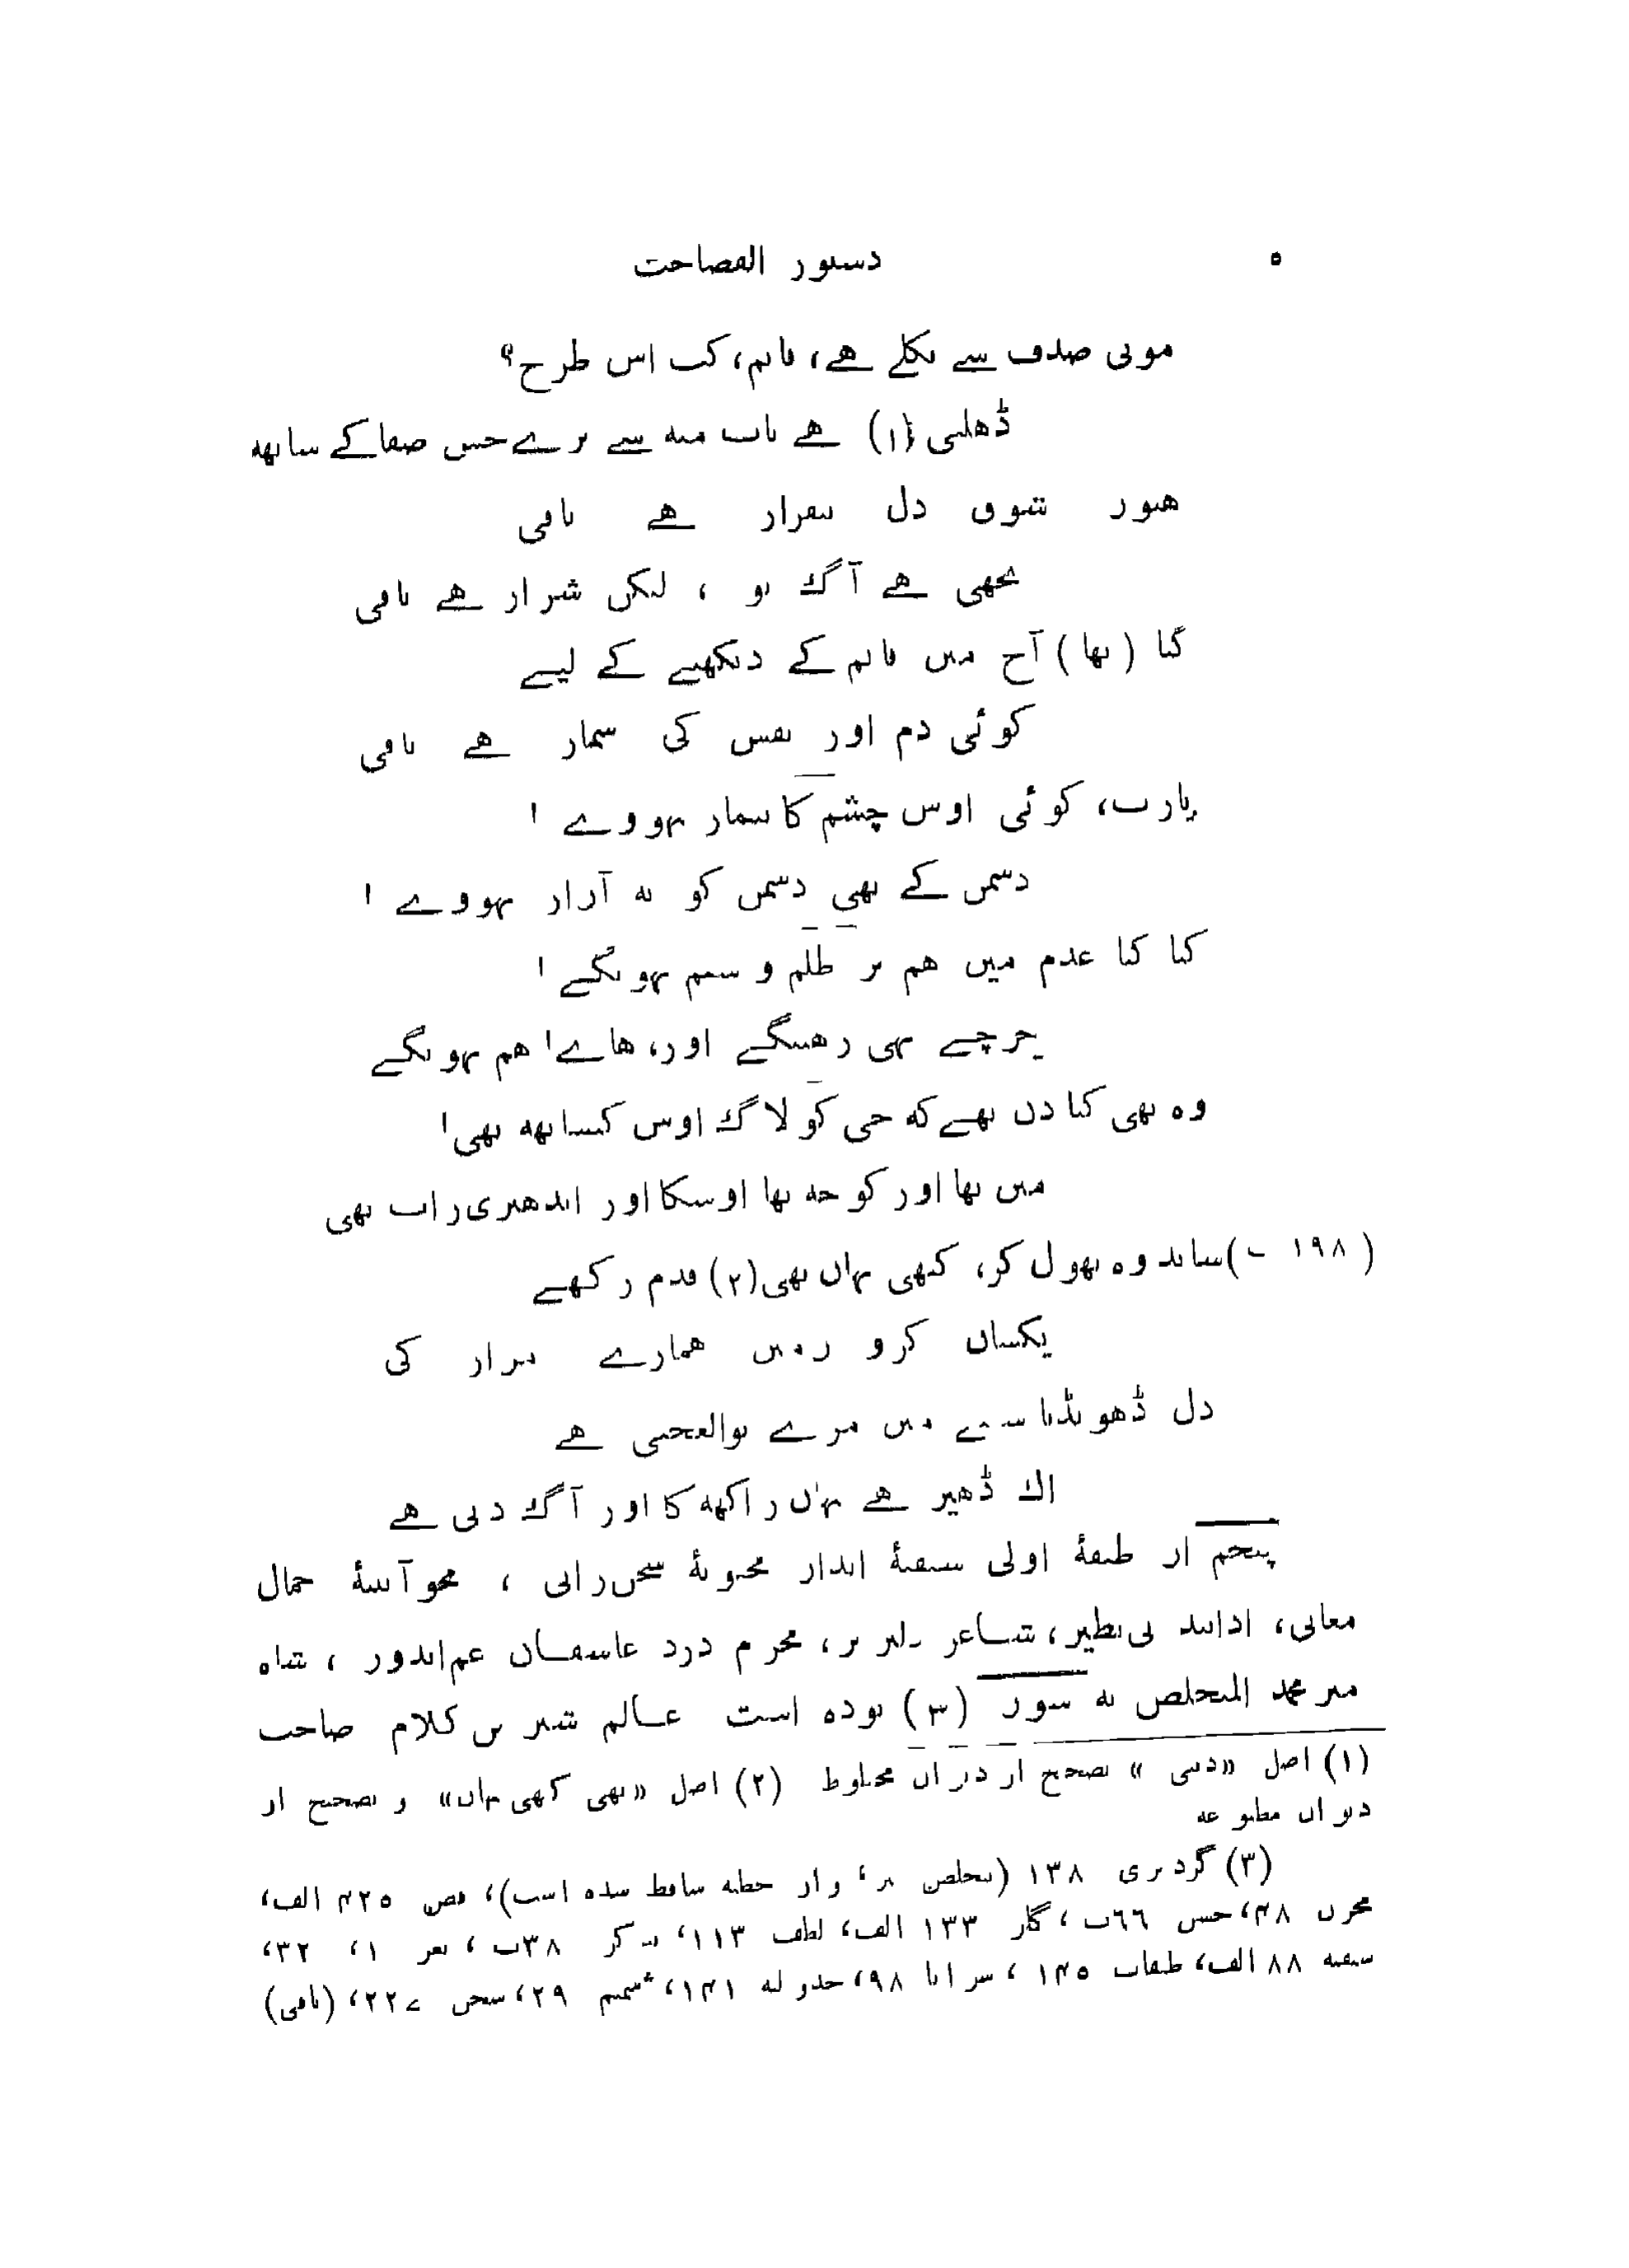 ۵ دستور الفصاحت
موتی صدف سے نکلے ہے، قائم، کب اس طرح؟
ڈھلتی (۱) ہے بات منہ سے ترے جس صفا کے ساتھہ
ہنوز شوق دل بیقرار ہے باقی
بجھی ہے آگ تو ، لیکن شرار ہے باقی
گیا (تھا) آج میں قائم کے دیکھنے کے لیے
کوئی دم اور نفس کی شمار ہے باقی
یارب، کوئی اوس چشم کا بیمار نہووے !
دشمن کے بھی دشمن کو یہ آزار نہووے !
کیا کیا عدم میں ہم پر ظلم و ستم نہونگے !
چرچے یہی رہینگے اور، ہاے! ہم نہونگے
وہ بھی کیا دن تھے کہ جی کو لاگ اوس کیساتھہ تھی!
میں تھا اور کوچہ تھا اوسکا اور اندھیری رات تھی
(۱۹۸ ب) شاید وہ بھول کر، کبھی یہاں بھی (۲) قدم رکھے
یکساں کرو زمیں ہمارے مزار کی
دل ڈھونڈنا سینے میں مرے بوالعجبی ہے
اک ڈھیر ہے یہاں راکھہ کا اور آگ دبی ہے
پنجم از طبقۂ اولی شیفتۂ انداز محبوبۂ سخن رانی ، محو آئینۂ جمال
معانی، ادابند بی نظیر، شاعر دلپذیر، محرم درد عاشقان غم اندوز ، شاہ
میر محمد المتخلص بہ سوز (۳) بودہ است عالم شیریں کلام صاحب
(۱) اصل «دبتی» تصحیح از دیوان مخطوط (۲) اصل «بھی کبھی یہاں» و تصحیح از
دیوان مطبوعہ
(۳) گردیزی ۱۳۸ (بتخلص میر، و از خطیہ ساقط شدہ است)، قص ۴۲۵ الف،
مخزن ۴۸، حسن ۶۶ب ، گلز ۱۳۳ الف، لطف ۱۱۳، تذکر ۳۸ب ، نغز ۱، ۳۲،
سفینہ ۸۸ الف، طبقات ۱۴۵ ، سراپا ۹۸، جدولیہ ۱۴۱، شمیم ۲۹، سخن ۲۲۷، (باقی)